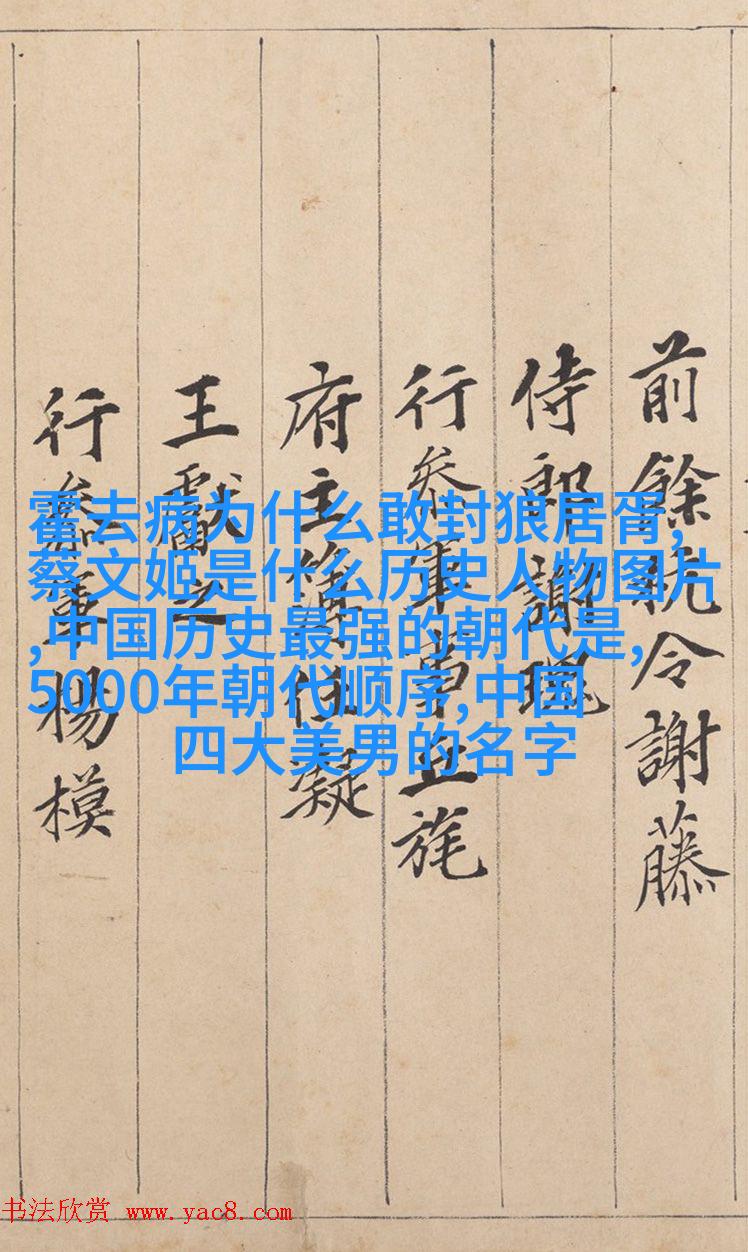 霍去病为什么敢封狼居胥,
蔡文姬是什么历史人物图片
,中国历史最强的朝代是,
5000年朝代顺序,中国
四大美男的名字
前餘杭令謝藤
侍郎謝瑰
行叅軍事丘旄
府主簿任凝
王獻之
行叅軍楊模
书法欣赏 www.yac8.com